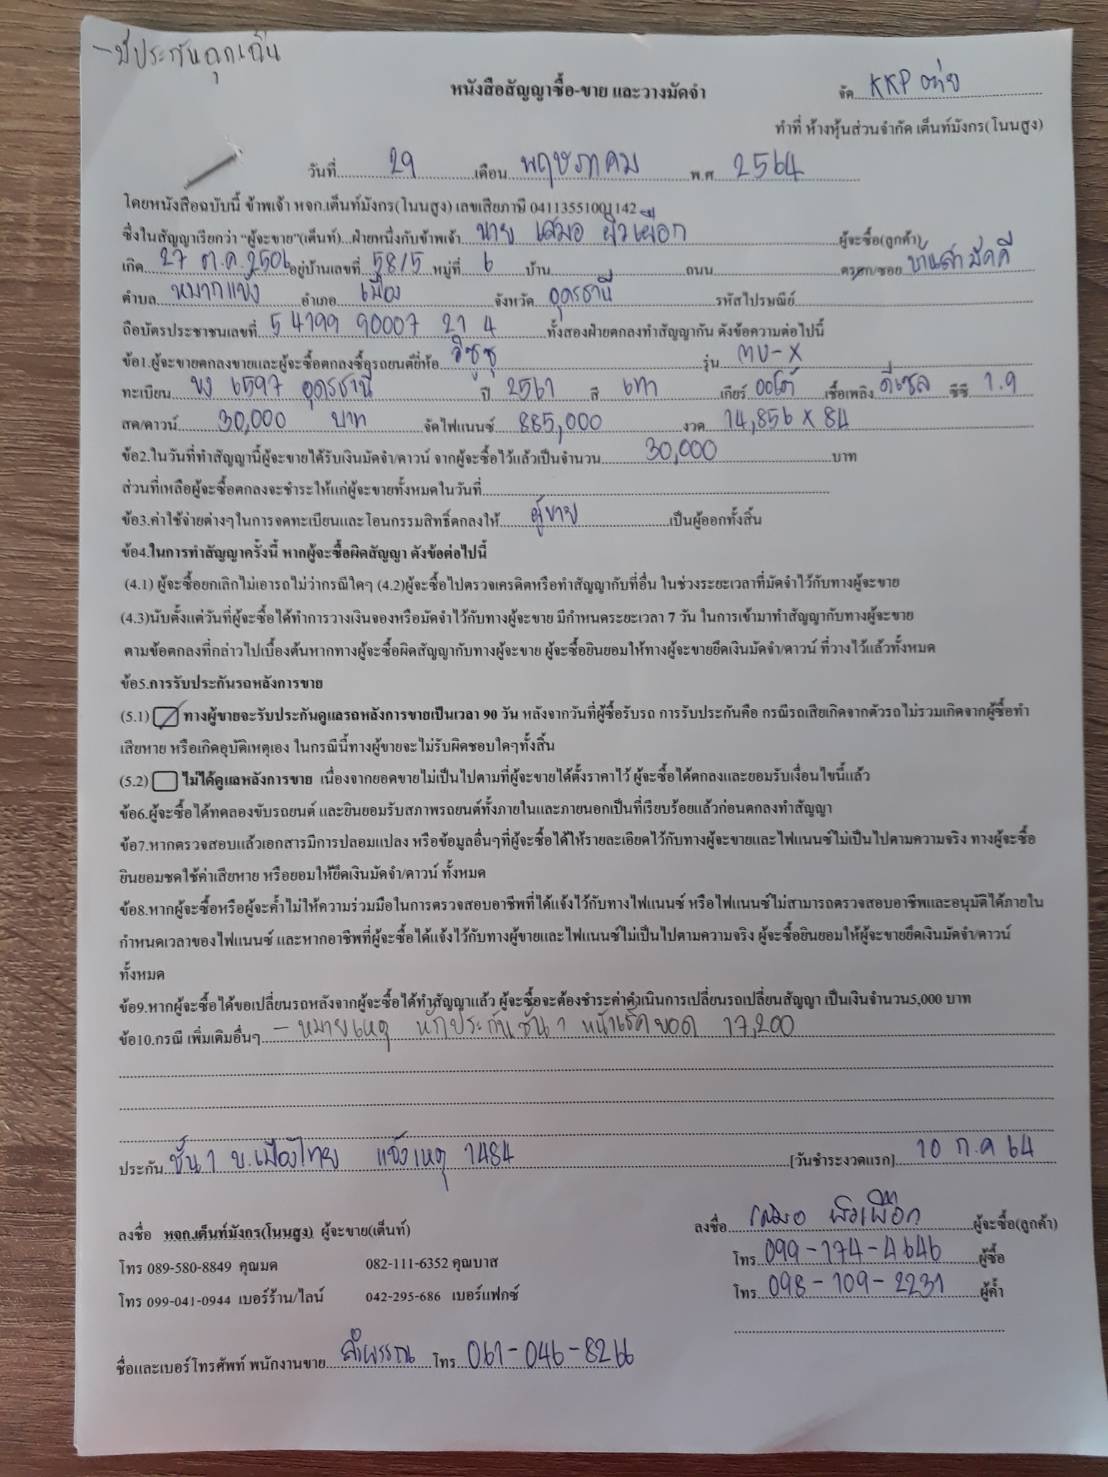 - มีประกันฉุกเฉิน
หนังสือสัญญาซื้อ-ขาย และวางมัดจำ
จัด KKP
ทำที่ ห้างหุ้นส่วนจำกัด เต็นท์มังกร(โนนสูง)
วันที่ 29 เดือน พฤษภาคม พ.ศ 2564
โดยหนังสือฉบับนี้ ข้าพเจ้า หจก.เต็นท์มังกร(โนนสูง) เลขเสียภาษี 04113551001142
ซึ่งในสัญญาเรียกว่า "ผู้จะขาย"(เต็นท์)...ฝ่ายหนึ่งกับข้าพเจ้า นาย เสมอ ผิวเผือก ผู้จะซื้อ(ลูกค้า)
เกิด 27 ต.ค. 2506 อยู่บ้านเลขที่ 58/5 หมู่ที่ 6 บ้าน ถนน ตรอก/ซอย บ้านสามัคคี
ตำบล หมากแข้ง อำเภอ เมือง จังหวัด อุดรธานี รหัสไปรษณีย์
ถือบัตรประชาชนเลขที่ 5 4199 90007 21 4 ทั้งสองฝ่ายตกลงทำสัญญากัน ดังข้อความต่อไปนี้
ข้อ1.ผู้จะขายตกลงขายและผู้จะซื้อตกลงซื้อรถยนต์ยี่ห้อ อีซูซุ รุ่น MU-X
ทะเบียน ขง 6597 อุดรธานี ปี 2561 สี เทา เกียร์ ออโต้ เชื้อเพลิง ดีเซล ซีซี 1.9
สด/ดาวน์ 30,000 บาท จัดไฟแนนซ์ 885,000 งวด 14,856 x 84
ข้อ2.ในวันที่ทำสัญญานี้ผู้จะขายได้รับเงินมัดจำ/ดาวน์ จากผู้จะซื้อไว้แล้วเป็นจำนวน 30,000 บาท
ส่วนที่เหลือผู้จะซื้อตกลงจะชำระให้แก่ผู้จะขายทั้งหมดในวันที่
ข้อ3.ค่าใช้จ่ายต่างๆในการจดทะเบียนและโอนกรรมสิทธิ์ตกลงให้ ผู้ขาย เป็นผู้ออกทั้งสิ้น
ข้อ4.ในการทำสัญญาครั้งนี้ หากผู้จะซื้อผิดสัญญา ดังข้อต่อไปนี้
(4.1) ผู้จะซื้อยกเลิกไม่เอารถไม่ว่ากรณีใดๆ (4.2)ผู้จะซื้อไปตรวจเครดิตหรือทำสัญญากับที่อื่น ในช่วงระยะเวลาที่มัดจำไว้กับทางผู้จะขาย
(4.3)นับตั้งแต่วันที่ผู้จะซื้อได้ทำการวางเงินจองหรือมัดจำไว้กับทางผู้จะขาย มีกำหนดระยะเวลา 7 วัน ในการเข้ามาทำสัญญากับทางผู้จะขาย
ตามข้อตกลงที่กล่าวไปเบื้องต้นหากทางผู้จะซื้อผิดสัญญากับทางผู้จะขาย ผู้จะซื้อยินยอมให้ทางผู้จะขายยึดเงินมัดจำ/ดาวน์ ที่วางไว้แล้วทั้งหมด
ข้อ5.การรับประกันรถหลังการขาย
(5.1) ทางผู้ขายจะรับประกันดูแลรถหลังการขายเป็นเวลา 90 วัน หลังจากวันที่ผู้ซื้อรับรถ การรับประกันคือ กรณีรถเสียเกิดจากตัวรถไม่รวมเกิดจากผู้ซื้อทำ
เสียหาย หรือเกิดอุบัติเหตุเอง ในกรณีนี้ทางผู้ขายจะไม่รับผิดชอบใดๆทั้งสิ้น
(5.2) ไม่ได้ดูแลหลังการขาย เนื่องจากยอดขายไม่เป็นไปตามที่ผู้จะขายได้ตั้งราคาไว้ ผู้จะซื้อได้ตกลงและยอมรับเงื่อนไขนี้แล้ว
ข้อ6.ผู้จะซื้อได้ทดลองขับรถยนต์ และยินยอมรับสภาพรถยนต์ทั้งภายในและภายนอกเป็นที่เรียบร้อยแล้วก่อนตกลงทำสัญญา
ข้อ7.หากตรวจสอบแล้วเอกสารมีการปลอมแปลง หรือข้อมูลอื่นๆที่ผู้จะซื้อได้ให้รายละเอียดไว้กับทางผู้จะขายและไฟแนนซ์ไม่เป็นไปตามความจริง ทางผู้จะซื้อ
ยินยอมชดใช้ค่าเสียหาย หรือยอมให้ยึดเงินมัดจำ/ดาวน์ ทั้งหมด
ข้อ8.หากผู้จะซื้อหรือผู้จะค้ำไม่ให้ความร่วมมือในการตรวจสอบอาชีพที่ได้แจ้งไว้กับทางไฟแนนซ์ หรือไฟแนนซ์ไม่สามารถตรวจสอบอาชีพและอนุมัติได้ภายใน
กำหนดเวลาของไฟแนนซ์ และหากอาชีพที่ผู้จะซื้อได้แจ้งไว้กับทางผู้ขายและไฟแนนซ์ไม่เป็นไปตามความจริง ผู้จะซื้อยินยอมให้ผู้จะขายยึดเงินมัดจำ/ดาวน์
ทั้งหมด
ข้อ9.หากผู้จะซื้อได้ขอเปลี่ยนรถหลังจากผู้จะซื้อได้ทำสัญญาแล้ว ผู้จะซื้อจะต้องชำระค่าดำเนินการเปลี่ยนรถเปลี่ยนสัญญา เป็นเงินจำนวน5,000 บาท
ข้อ10.กรณี เพิ่มเติมอื่นๆ - หมายเหตุ หักประกันชั้น 1 หน้าเช็คยอด 17,200
ประกัน ชั้น 1 บ.เมืองไทย แจ้งเหตุ 1484 [วันชำระงวดแรก] 10 ก.ค 64
ลงชื่อ หจก.เต็นท์มังกร(โนนสูง) ผู้จะขาย(เต็นท์) ลงชื่อ เสมอ ผิวเผือก ผู้จะซื้อ(ลูกค้า)
โทร 089-580-8849 คุณมด 082-111-6352 คุณบาส โทร 099-174-4646 ผู้ซื้อ
โทร 099-041-0944 เบอร์ร้าน/ไลน์ 042-295-686 เบอร์แฟกซ์ โทร 098-109-2231 ผู้ค้ำ
ชื่อและเบอร์โทรศัพท์ พนักงานขาย ลำพรรณ โทร 061-046-8266